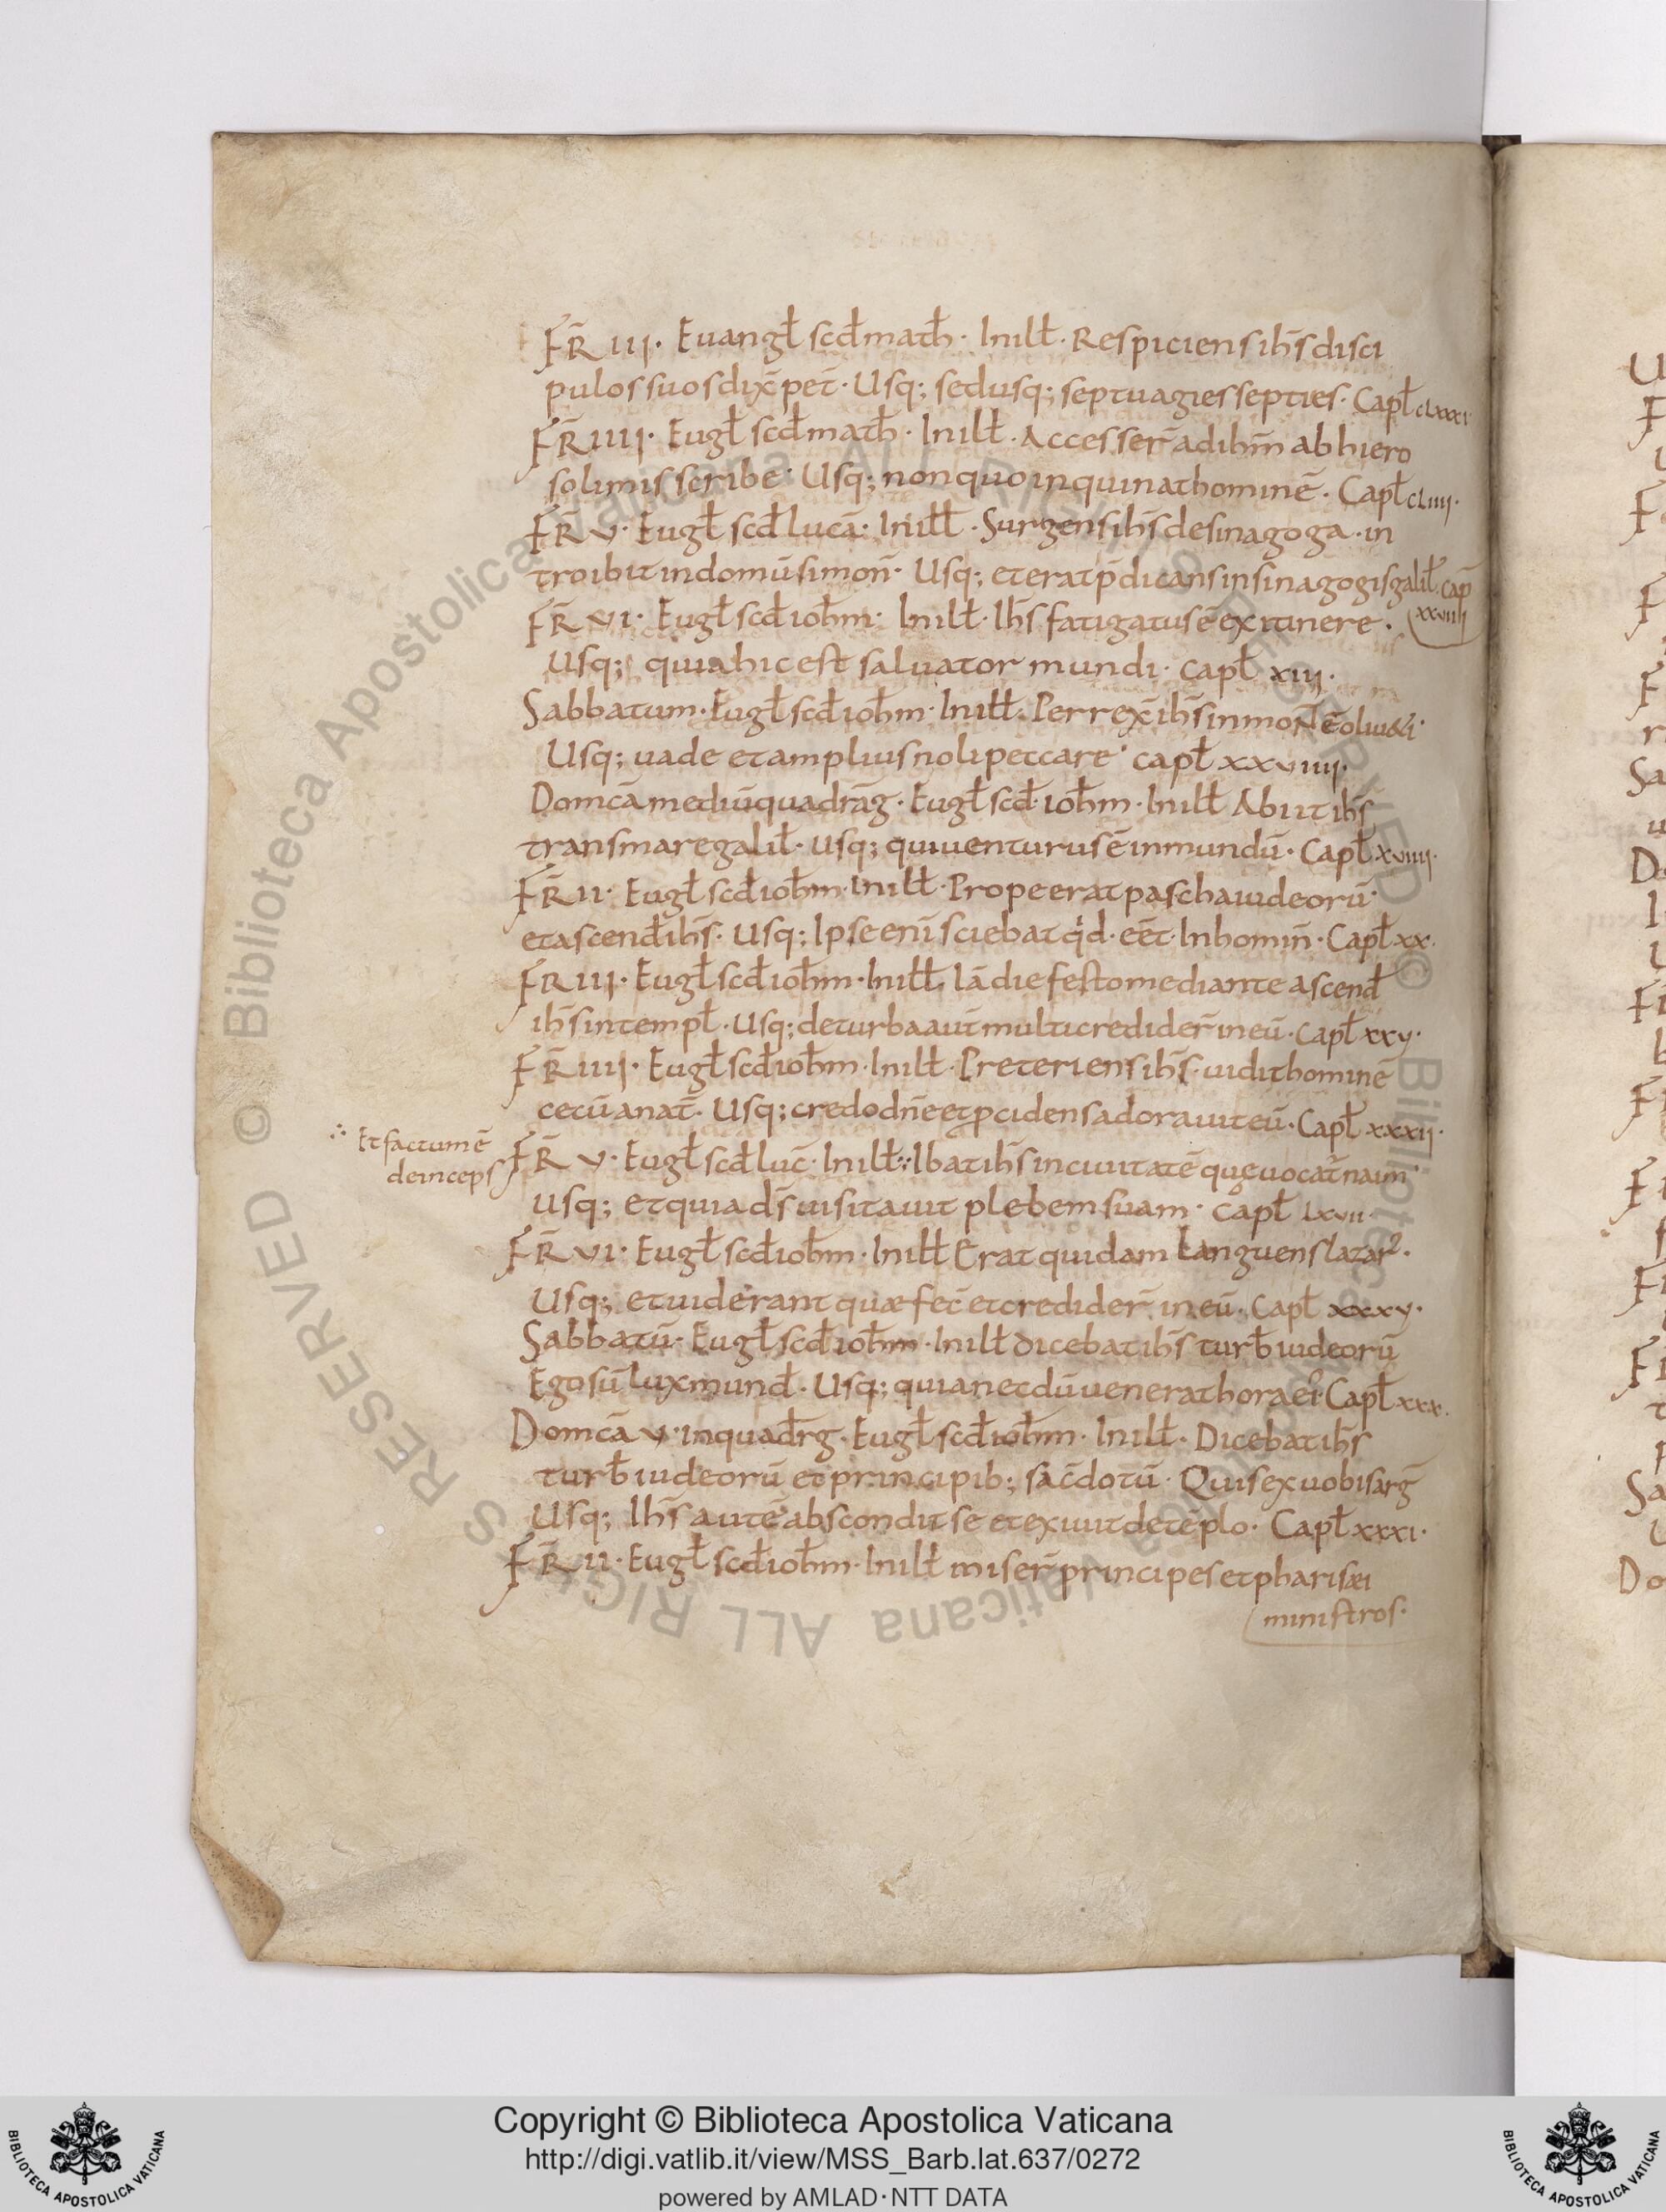 FR̄ III· Euangł scd̄ math̄· In illł· Respiciens ih̄s disci
pulos suos dix̄ pet̄· Usq; sed usq; septuagies septies· Capł CLxxxi·
FR̄ IIII· Eugł scd̄ math̄· In illł· Accesser̄ ad ihm̄ ab hiero
solimis scribe· Usq; non quoinquinat hominē· Capł CLIIII·
FR̄ V· Eugł scd̄ lucā· In illł· Surgens ih̄s de sinagoga· in
troibit in domū simon̄· Usq; et erat p̄dicans in sinagogis galil̄· cap̄
xxviiii
FR̄ VI· Eugł scd̄ ioh̄m· In illł· Ih̄s fatigatus ē ex itinere·
Usq; quia hic est saluator mundi· capł xiii·
Sabbatum· Eugł scd̄ ioh̄m· In illł· Perrex̄ ih̄s in monTē oliu&i·
Usq; uade et amplius noli peccare· capł xxviiii·
Domcā mediū quadrāg· Eugł scd̄· ioh̄m· In illł Abiit ih̄s
trans mare galil̄· usq; qui uenturus ē in mundū· Capł xviiii·
FR̄ II· Eugł scd̄ ioh̄m· In illł· Prope erat pascha iudeorū·
et ascend̄ ih̄s· Usq; Ipse enī sciebat qd· eēt· In homin̄· Capł xx·
FR III· Eugł scd̄ ioh̄m· In illł Iā die festo mediante ascend̄
ih̄s in templ̄· Usq; de turba aut̄ multi credider̄ in eū· capł xxv·
FR̄ IIII· Eugł scd̄ ioh̄m· In illł· Preteriens ih̄s· uidit hominē
cecū a nat̄· Usq; credo dn̄e et pcidens adorauit eū· Capł xxxii·
∴ Et factum ē
deinceps
FR̄ V· Eugł scd̄ luc̄· In illł ∴ Ibat ih̄s in ciuitatē quę uocat̄ naim·
Usq; et quia d̄s uisitauit plebem suam· capł Lxvii·
FR̄ VI· Eugł scd̄ ioh̄m· In illł Erat quidam Languens lazar·
Usq; et uiderant quæ fec̄ et crediderˉ in eū· Capł xxxv·
Sabbatū· Eugł scd̄ ioh̄m· In illł dicebat ih̄s turb̄ iudeorū
Ego sū Lux mund̄· Usq; quia necdū uenerat hora ei· Capł xxx·
Domcā V· in quad̄rg· Eugł scd̄ ioh̄m· In illł· Dicebat ih̄s
turb̄ iudeorū et principib; sac̄dotū· Quis ex uobis arḡ
Usq; Ih̄s autē abscondit se et exiuit de tēplo· Capł xxxi·
FR̄ II· Eugł scd̄ ioh̄m· In illł miser̄ principes et pharisæi
ministros·
© Biblioteca Apostolica Vaticana ALL RIGHTS RESERVED
Copyright © Biblioteca Apostolica Vaticana
http://digi.vatlib.it/view/MSS_Barb.lat.637/0272
powered by AMLAD·NTT DATA
BIBLIOTECA APOSTOLICA VATICANA
BIBLIOTECA APOSTOLICA VATICANA